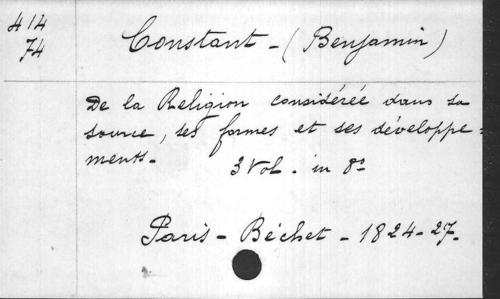 414
74
Constant - (Benjamin)
De la Religion considérée dans sa
source, ses formes et ses développe=
ments.
3 Vol. in 8º
Paris - Béchet - 1824-27.